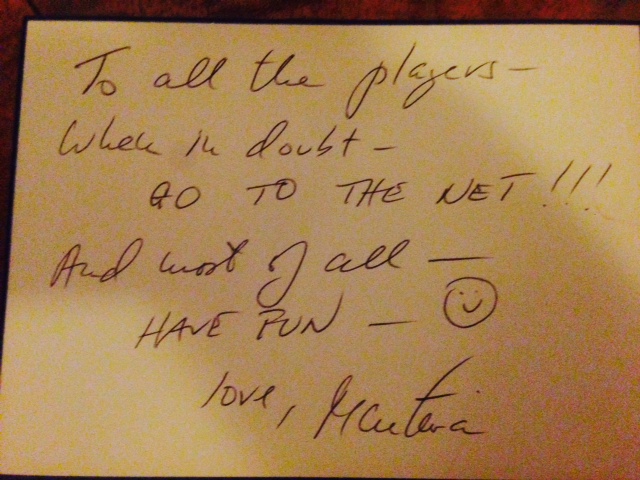 To all the players—
When in doubt—
GO TO THE NET!!!
And most of all —
HAVE FUN —
love, Martina